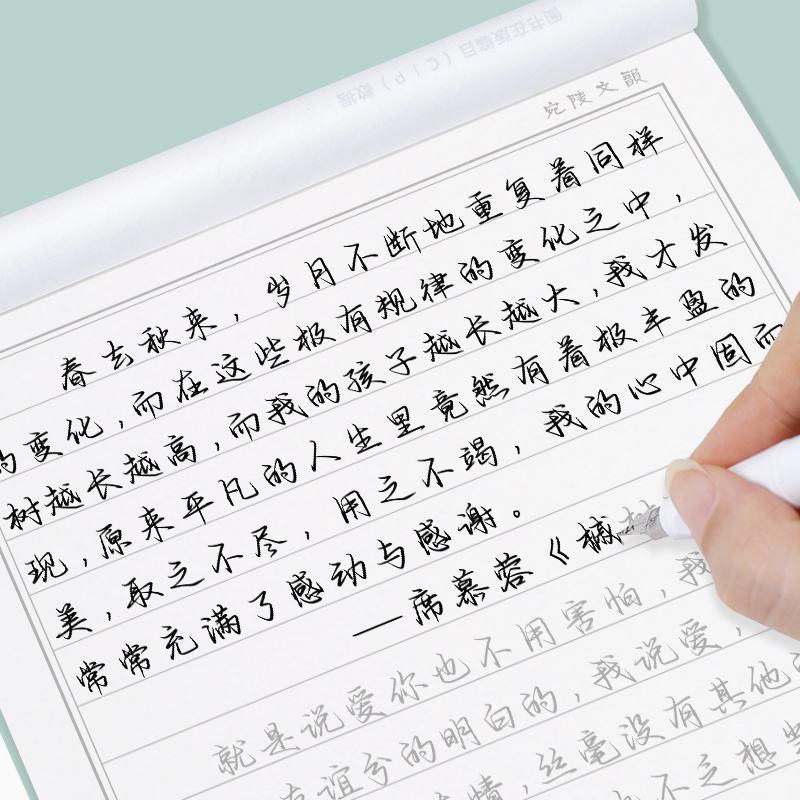 图书在版编目（CIP）数据
宛陵文韻
春去秋来，岁月不断地重复着同样
的变化，而在这些极有规律的变化之中，
树越长越高，而我的孩子越长越大，我才发
现，原来平凡的人生里竟然有着极丰盈的
美，取之不尽，用之不竭，我的心中固而
常常充满了感动与感谢。
——席慕蓉《槭
就是说爱你也不用害怕，我
谊兮的明白的，我说爱，
情，丝毫没有其他
不之想